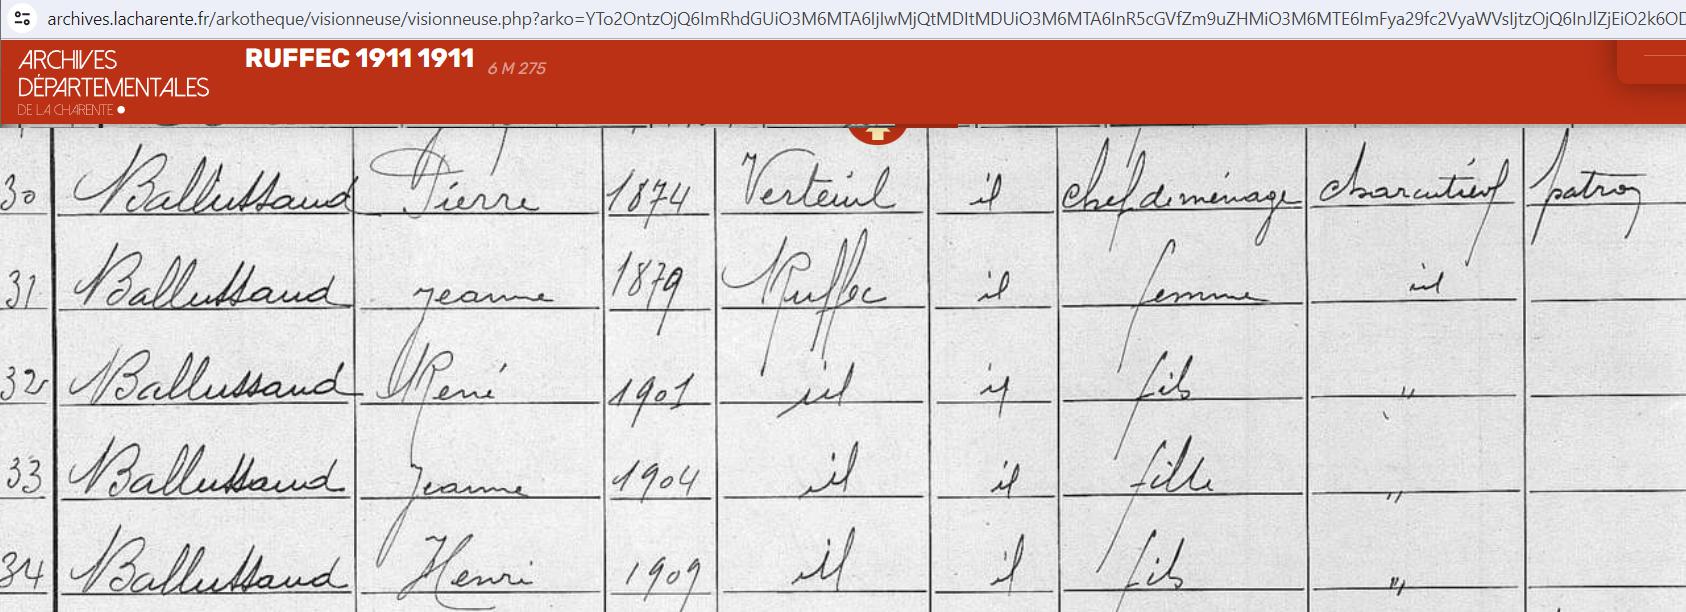 archives.lacharente.fr/arkotheque/visionneuse/visionneuse.php?arko=YTo2OntzOjQ6ImRhdGUiO3M6MTA6IjIwMjQtMDItMDUiO3M6MTA6InR5cGVfZm9uZHMiO3M6MTE6ImFya29fc2VyaWVsIjtzOjQ6InJlZjEiO2k6OD
ARCHIVES DÉPARTEMENTALES DE LA CHARENTE
RUFFEC 1911 1911 6 M 275
30 Ballussaud Pierre 1874 Verteuil id chef de ménage charcutier patron
31 Ballussaud Jeanne 1879 Ruffec id femme id
32 Ballussaud René 1901 id id fils "
33 Ballussaud Jeanne 1904 id id fille "
34 Ballussaud Henri 1909 id id fils "